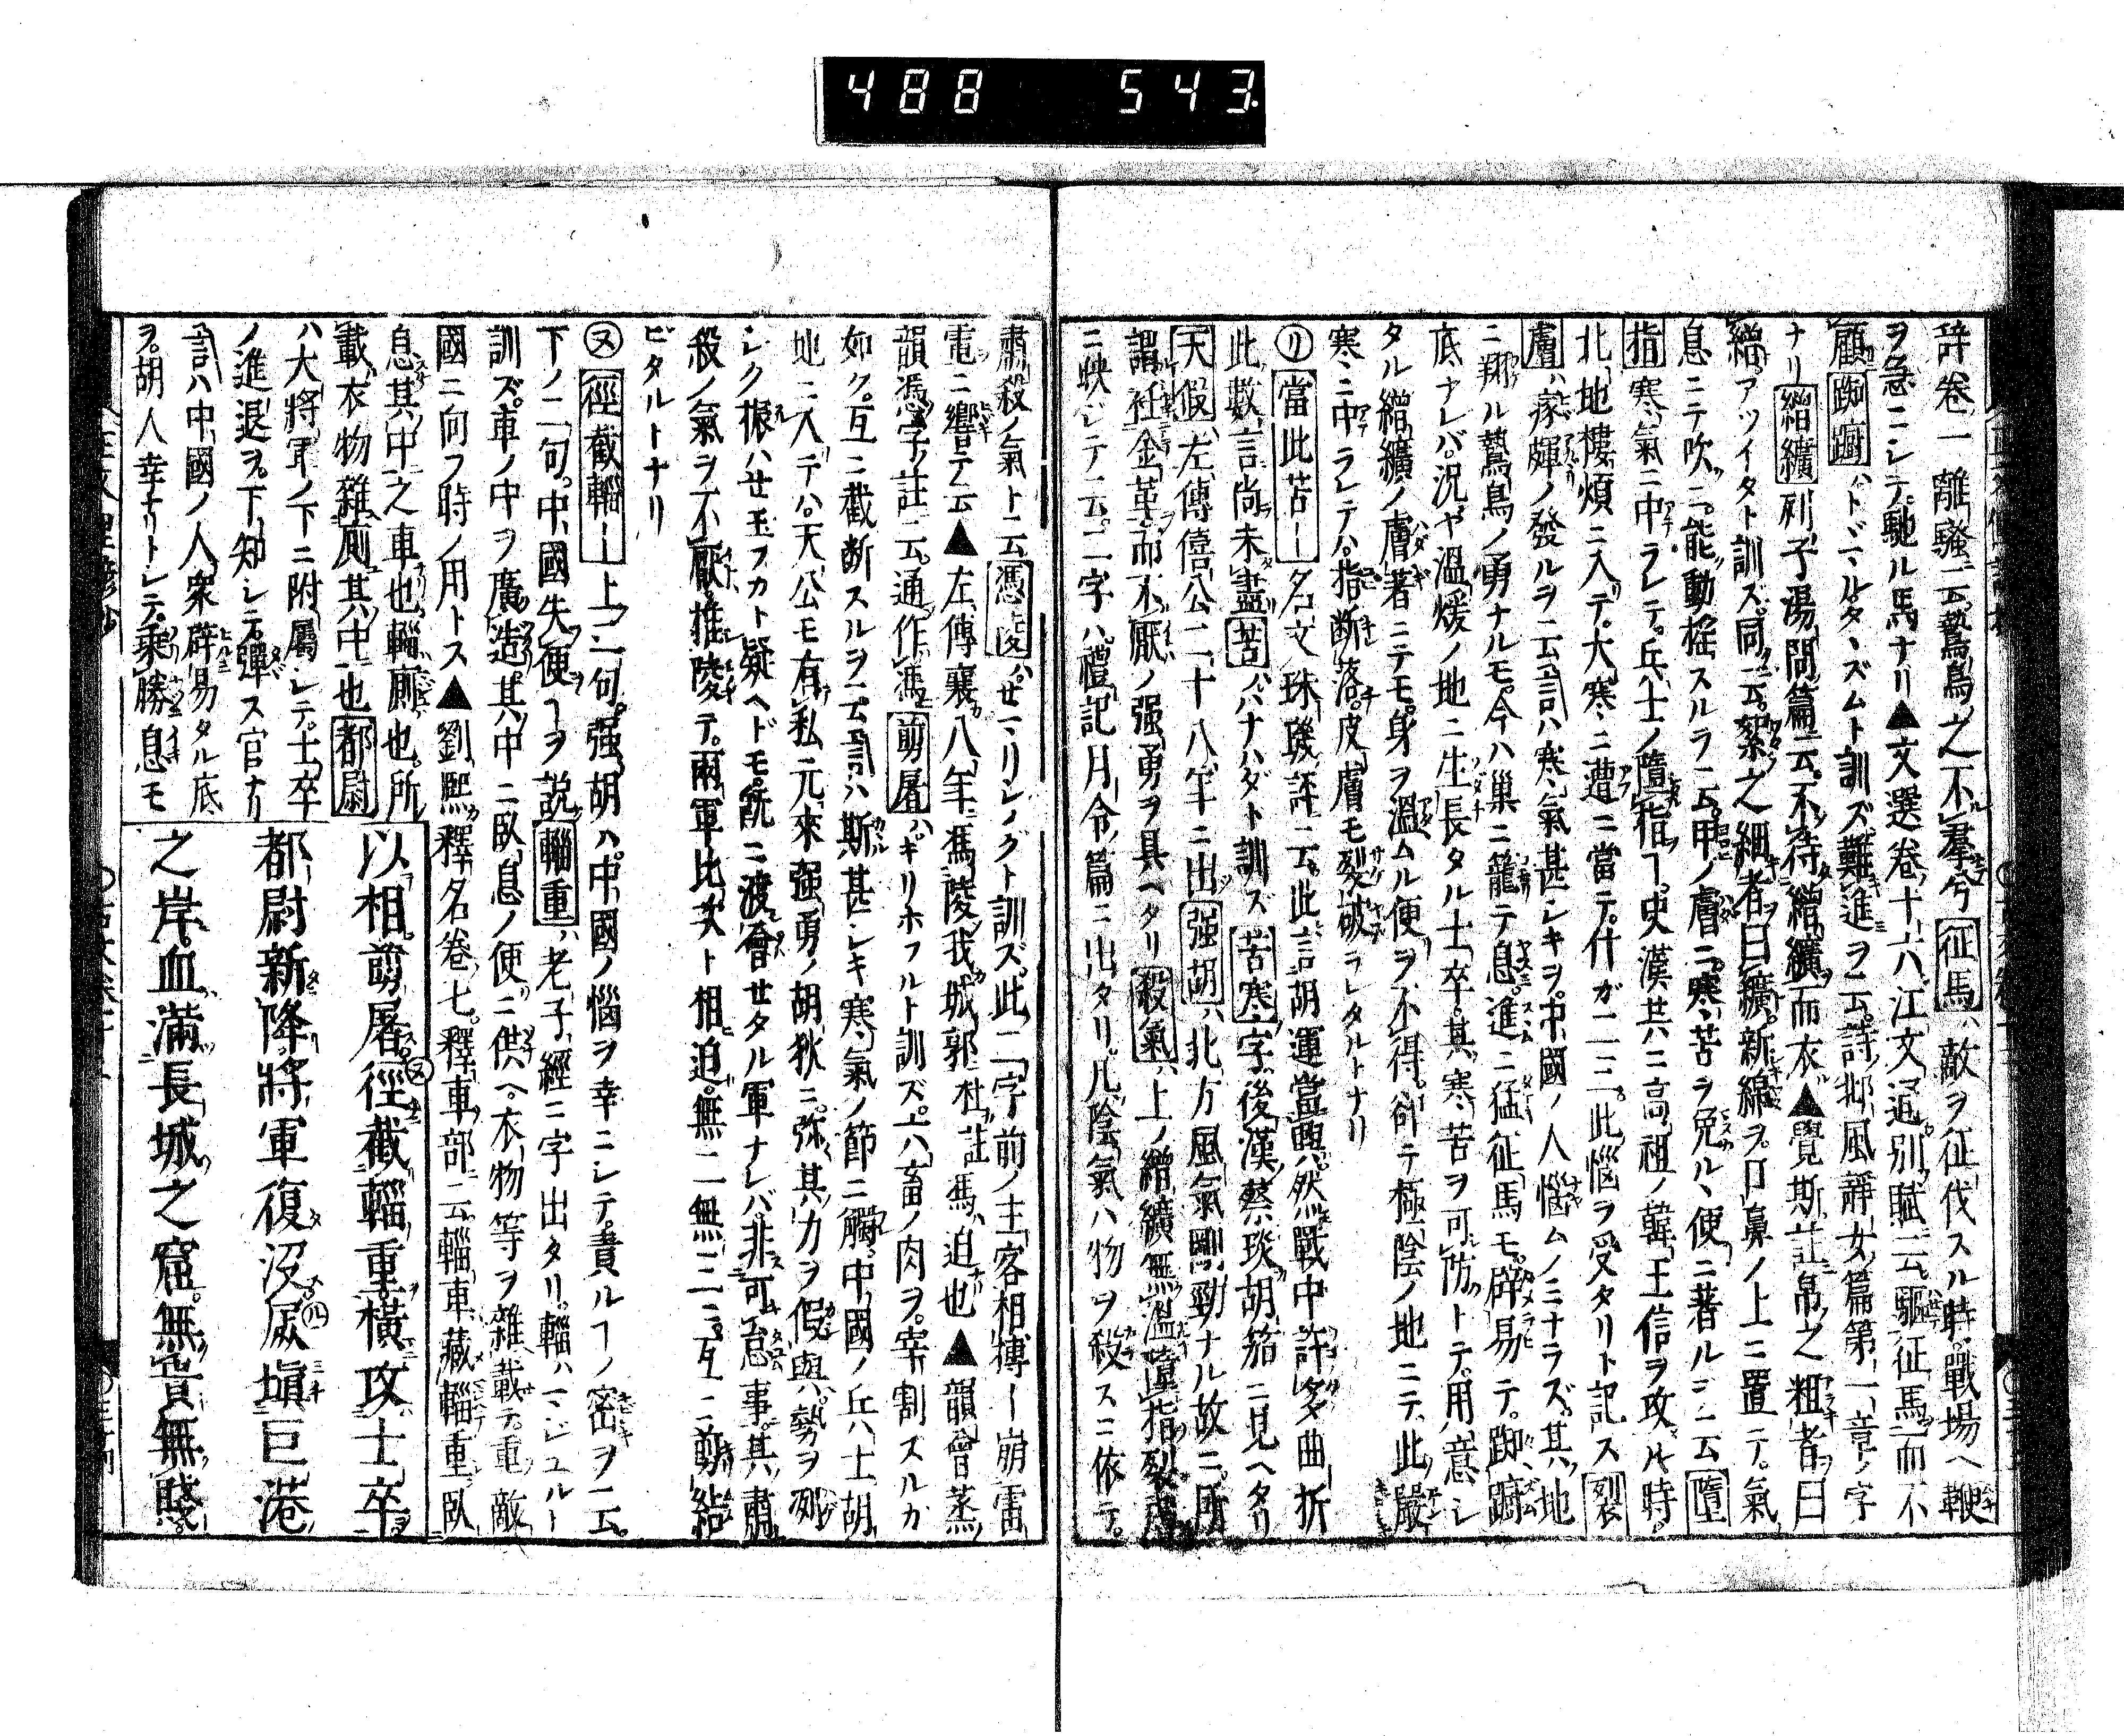 488 543.
辞卷一離騷云鷙鳥之不羣兮征馬ハ敵ヲ征伐スル時戰場ヘ鞭
ヲ急ニシテ馳ル馬ナリ▲文選卷十六江文通別賦云驅征馬而不
顧踟蹰ハトヾマルタヽズムト訓ズ難進ヲ云詩邶風靜女篇第一章ノ字
ナリ繒纊列子湯問篇云不待繒纊而衣▲覺斯註帛之粗者曰
繒アツイタト訓ズ同云絮之細者曰纊新綿ヲ口鼻ノ上ニ置テ氣
息ニテ吹ニ能動搖スルヲ云甲ノ膚ニ寒苦ヲ免ルヽ便ニ著ルヲ云墮
指寒氣ニ中ラレテ兵士ノ墮指ヿ史漢共ニ高祖ノ韓王信ヲ攻ル時
北地樓煩ニ入テ大寒ニ遭ニ當テ什ガ二三此惱ヲ受タリト記ス裂
膚ハ瘃皹ノ發ルヲ云言ハ寒氣甚シキヲ中國ノ人惱ムノミナラズ其地
ニ翔ル鷙鳥ノ勇ナルモ今ハ巢ニ籠テ息進ニ猛征馬モ辟易テ踟蹰
底ナレバ況ヤ溫煖ノ地ニ生長タル士卒其寒苦ヲ可防トテ用意シ
タル繒纊ノ膚著ニテモ身ヲ溫ムル便ヲ不得却テ極陰ノ地ニテ此嚴
寒ニ中ラレテハ指斷落皮膚モ裂破ラレタルトナリ
リ當此苦ー名文珠璣評云此言胡運當興然戰中許多曲折
此數言尚未盡苦ハハナハダト訓ズ苦寒字後漢蔡琰胡笳ニ見ヘタリ
天假左傳僖公二十八年ニ出强胡ハ北方風氣剛勁ナル故ニ所
謂衽金革而不厭ノ强勇ヲ具ヘタリ殺氣ハ上ノ繒纊無溫墮指裂膚
ニ映ジテ云二字ハ禮記月令篇ニ出タリ凡陰氣ハ物ヲ殺スニ依テ
肅殺ノ氣ト云憑陵ハせマリシノグト訓ズ此二字前ノ主客相搏ー崩雷
電ニ響テ云▲左傳襄八年馮陵我城郭杜註馮迫也▲韻會蒸
韻馮字ノ註云通作馮剪屠ハキリホフルト訓ズ上ハ畜ノ肉ヲ宰割ズルカ
如ク互ニ截斷スルヲ云言ハ斯甚シキ寒氣ノ節ニ觸中國ノ兵士胡
地ニ入テハ天公モ有私元來强勇ノ胡狄ニ弥其力ヲ假與勢ヲ烈
シク振ハせ玉フカト疑ヘドモ既ニ渡會せタル軍ナレバ非可怠事其肅
殺ノ氣ヲ不厭推陵テ兩軍比次ト相迫無二無三ニ互ニ剪結
ビタルトナリ
ヌ徑截輜ー上二句强胡ハ中國ノ惱ヲ幸ニシテ責ルヿノ密ヲ云
下ノ二句中國失便ヿヲ說輜重ハ老子經ニ字出タリ輜ハマジユルー
訓ズ車ノ中ヲ廣造其中ニ臥息ノ便ニ供ヘ衣物等ヲ雜載テ重敵
國ニ向フ時ノ用トス▲劉熙釋名卷七釋車部云輜車載輜重臥
息其中之車也輜廁也所
載衣物雜廁其中也都尉
ハ大將軍ノ下ニ附屬シテ士卒
ノ進退ヲ下知シテ彈ス官ナリ
言ハ中國ノ人衆辟易タル底
ヲ胡人幸ナリトシテ乘勝息モ
以相剪屠ヌ徑截輜重橫攻士卒
都尉新降將軍復沒屍塡巨港
之岸血滿長城之窟無貴無賤